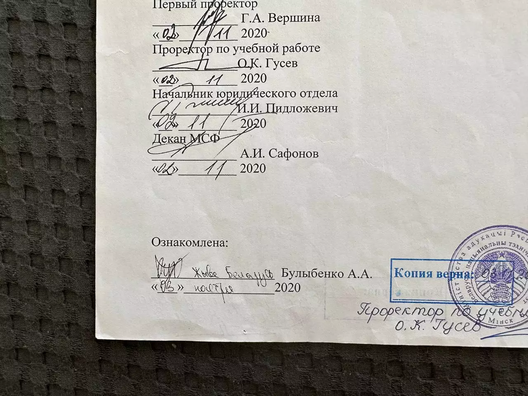 Первый проректор
Г.А. Вершина
«02» 11 2020
Проректор по учебной работе
О.К. Гусев
«02» 11 2020
Начальник юридического отдела
И.И. Цидложевич
«02» 11 2020
Декан МСФ
А.И. Сафонов
«02» 11 2020
Ознакомлена:
Жыве Беларусь Булыбенко А.А.
«03» ноября 2020
Копия верна:
Проректор по учебн
О.К. Гусев
Мінск